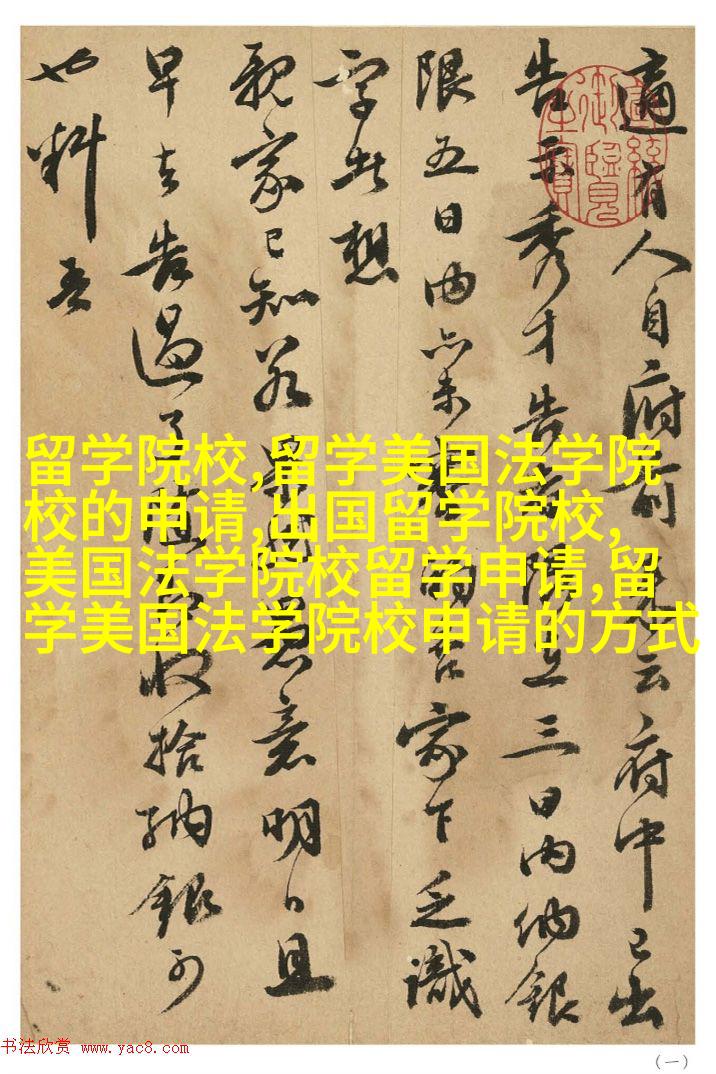 適有人自府前見云府中已出
告示秀才告三日內納銀
限五日內亦未家下乏識
字者想
親家已知若意明日且
早去告過了收拾納銀可
也料吾
宣統御覽之寶
留学院校,留学美国法学院
校的申请,出国留学院校,
美国法学院校留学申请,留
学美国法学院校申请的方式
书法欣赏 www.yac8.com
(一)